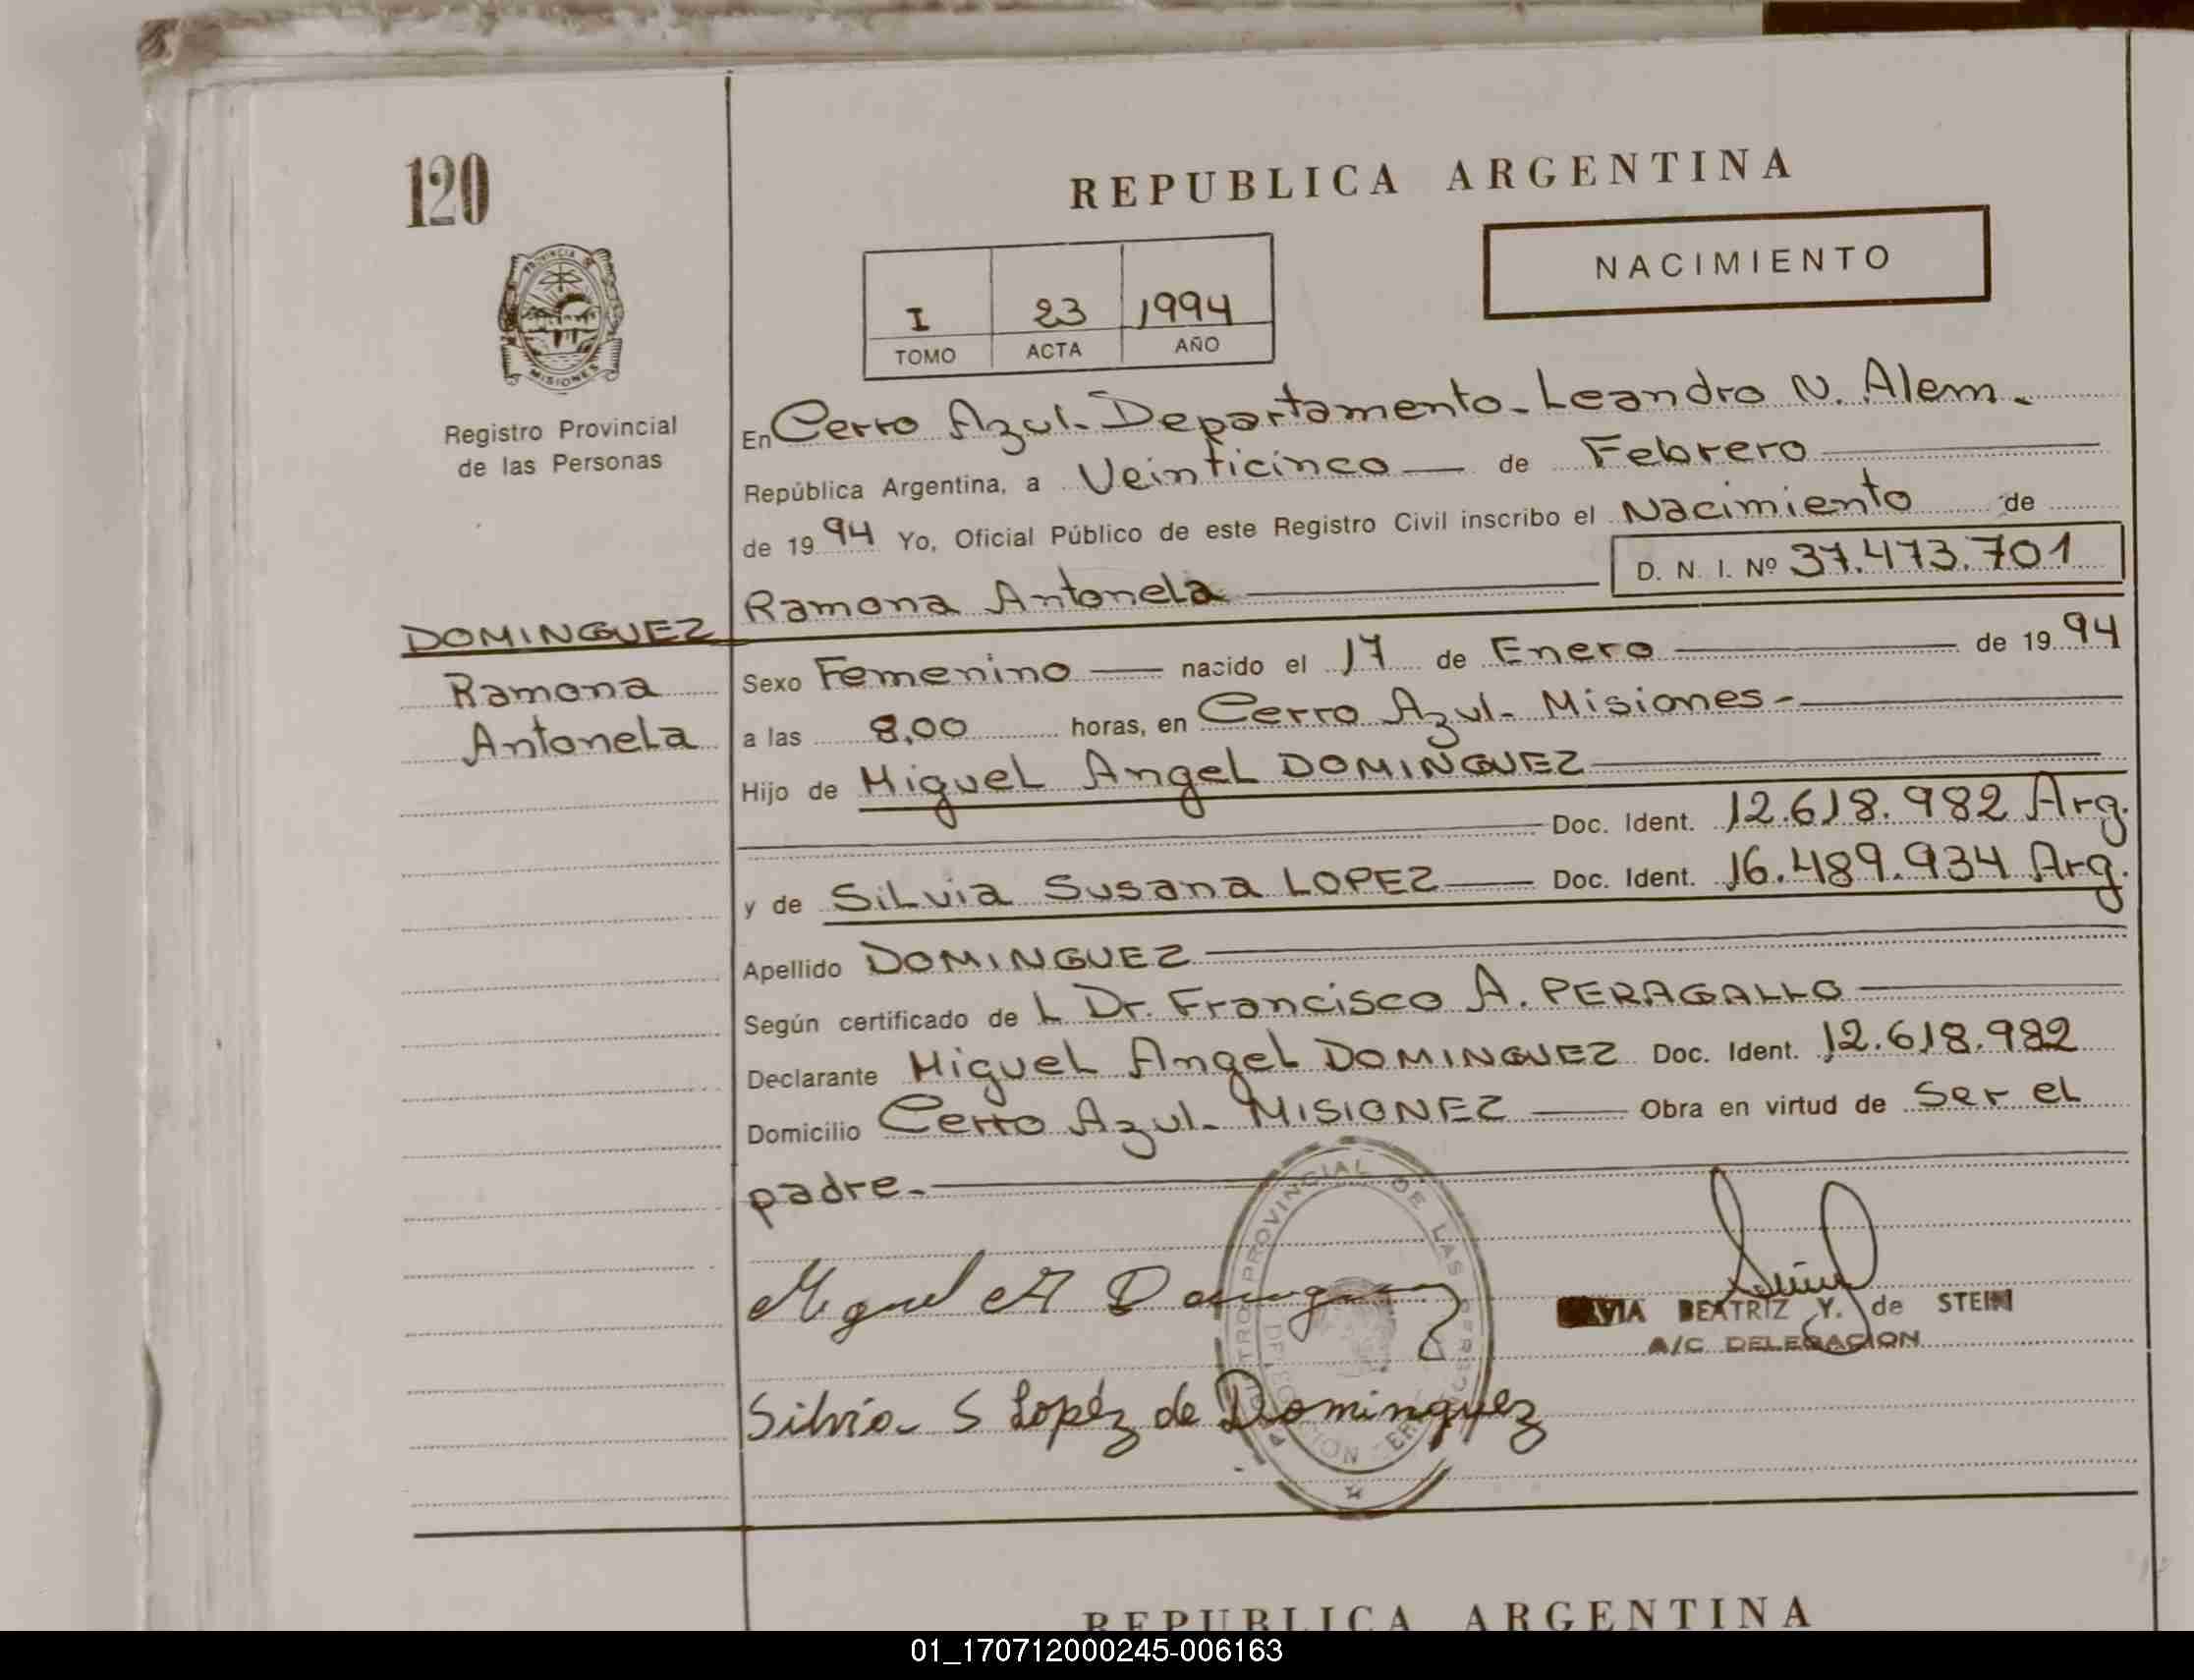 120
REPUBLICA ARGENTINA
NACIMIENTO
PROVINCIA DE
MISIONES
I 23 1994
TOMO ACTA AÑO
Registro Provincial
de las Personas
En Cerro Azul - Departamento - Leandro N. Alem.
República Argentina, a Veinticinco — de Febrero
de 1994 Yo, Oficial Público de este Registro Civil inscribo el Nacimiento de
D. N. I. Nº 37.473.701
Ramona Antonela
DOMINGUEZ
Ramona
Antonela
Sexo Femenino — nacido el 17 de Enero — de 1994
a las 8,00 horas, en Cerro Azul - Misiones -
Hijo de Miguel Angel DOMINGUEZ
Doc. Ident. 12.618.982 Arg.
y de Silvia Susana LOPEZ — Doc. Ident. 16.489.934 Arg.
Apellido DOMINGUEZ
Según certificado de L Dr. Francisco A. PERAGALLO
Declarante Miguel Angel DOMINGUEZ Doc. Ident. 12.618.982
Domicilio Cerro Azul - MISIONEZ — Obra en virtud de ser el
padre.
PROVINCIAL DE LAS
Miguel A Dominguez
BEATRIZ Y. de STEIN
A/C DELEGACION
Silvia S Lopéz de Dominguez
REPUBLICA ARGENTINA
01_170712000245-006163